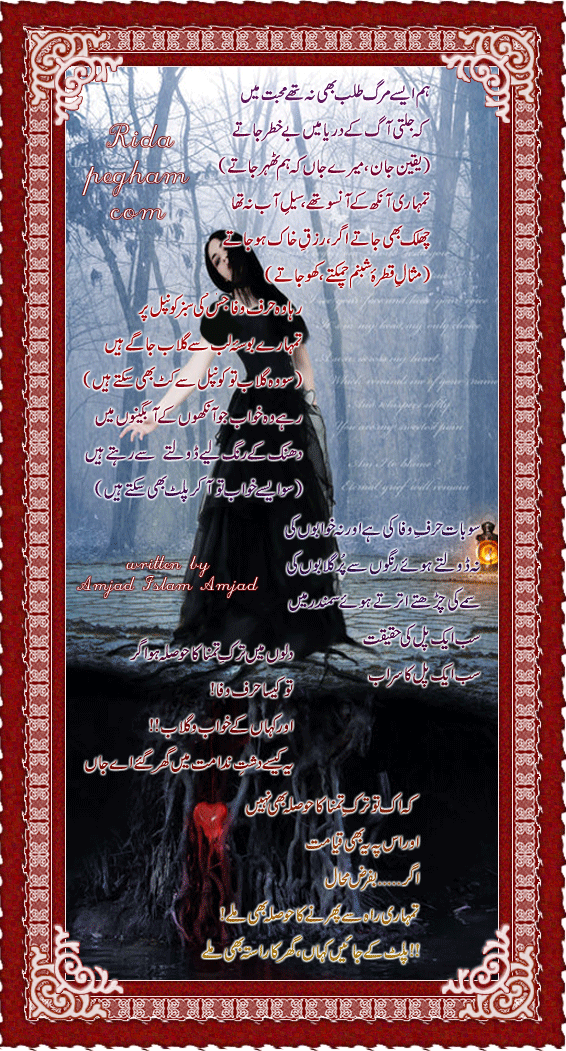 ہم ایسے مرگ طلب بھی نہ تھے محبت میں
کہ جلتی آگ کے دریا میں بے خطر جاتے
(یقین جان، میرے جاں کہ ہم ٹھہر جاتے)
تمہاری آنکھ کے آنسو تھے، سیلِ آب نہ تھا
چھلک بھی جاتے اگر، رزقِ خاک ہو جاتے
(مثالِ قطرۂ شبنم چمکتے، کھو جاتے)
Rida
pegham
com
رہا وہ حرف وفا جس کی سبز کونپل پر
تمہارے بوسۂ لب سے گلاب جاگے ہیں
(سو وہ گلاب تو کونپل سے کٹ بھی سکتے ہیں)
رہے وہ خواب جو آنکھوں کے آبگینوں میں
دھنک کے رنگ لیے ڈولتے سے رہتے ہیں
(سو ایسے خواب تو آ کر پلٹ بھی سکتے ہیں)
سو بات حرفِ وفا کی ہے اور نہ خوابوں کی
نہ ڈولتے ہوئے رنگوں سے پُر گلابوں کی
سمے کی چڑھتے اترتے ہوئے سمندر میں
سب ایک پل کی حقیقت
سب ایک پل کا سراب
written by
Amjad Islam Amjad
دلوں میں ترکِ تمنا کا حوصلہ ہو اگر
تو کیسا حرف وفا!
اور کہاں کے خواب و گلاب!!
یہ کیسے دشتِ ندامت میں گھر گئے اے جاں
کہ اک تو ترکِ تمنا کا حوصلہ بھی نہیں
اور اس پہ یہ بھی قیامت
اگر..... بفرض محال
تمہاری راہ سے پھرنے کا حوصلہ بھی ملے!
پلٹ کے جائیں کہاں، گھر کا راستہ بھی ملے!!